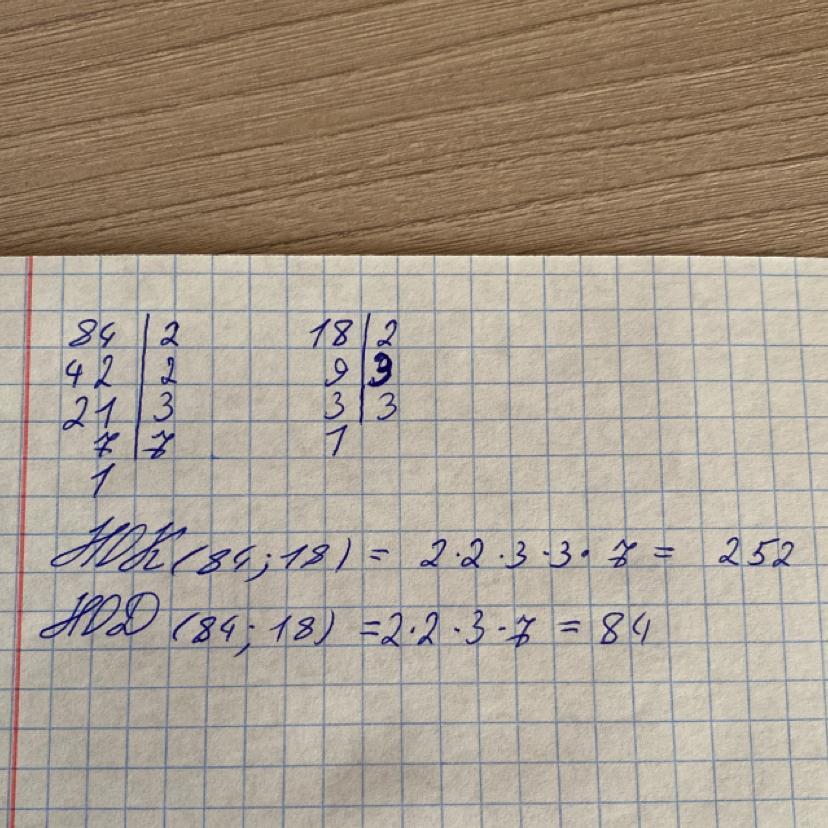 84 | 2 18 | 2
42 | 2 9 | 3
21 | 3 3 | 3
7 | 7 1
1
НОК (84; 18) = 2·2·3·3·7 = 252
НОД (84; 18) = 2·2·3·7 = 84